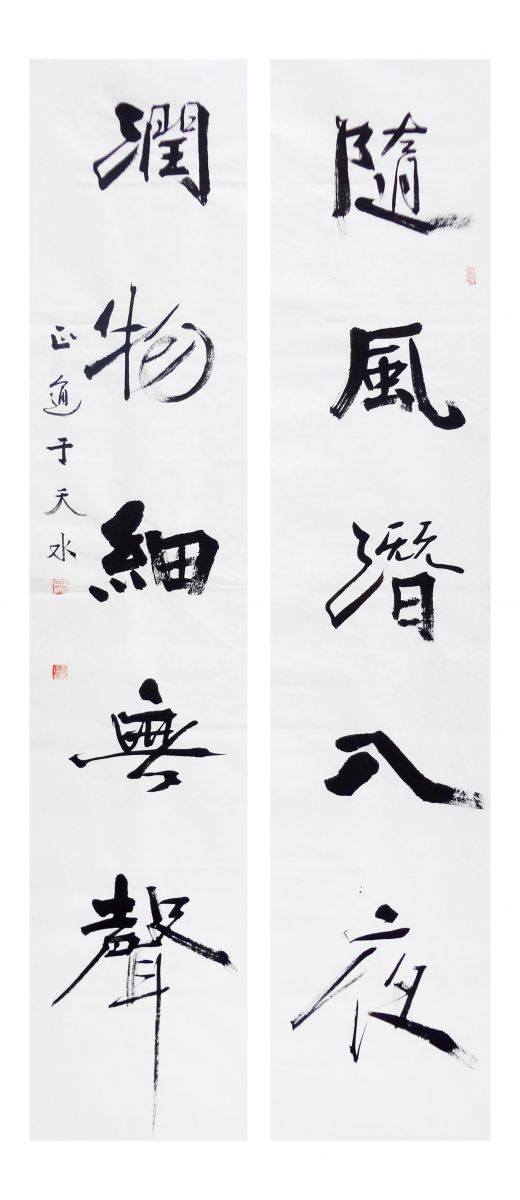 隨風潛入夜
潤物細無聲
正道于天水